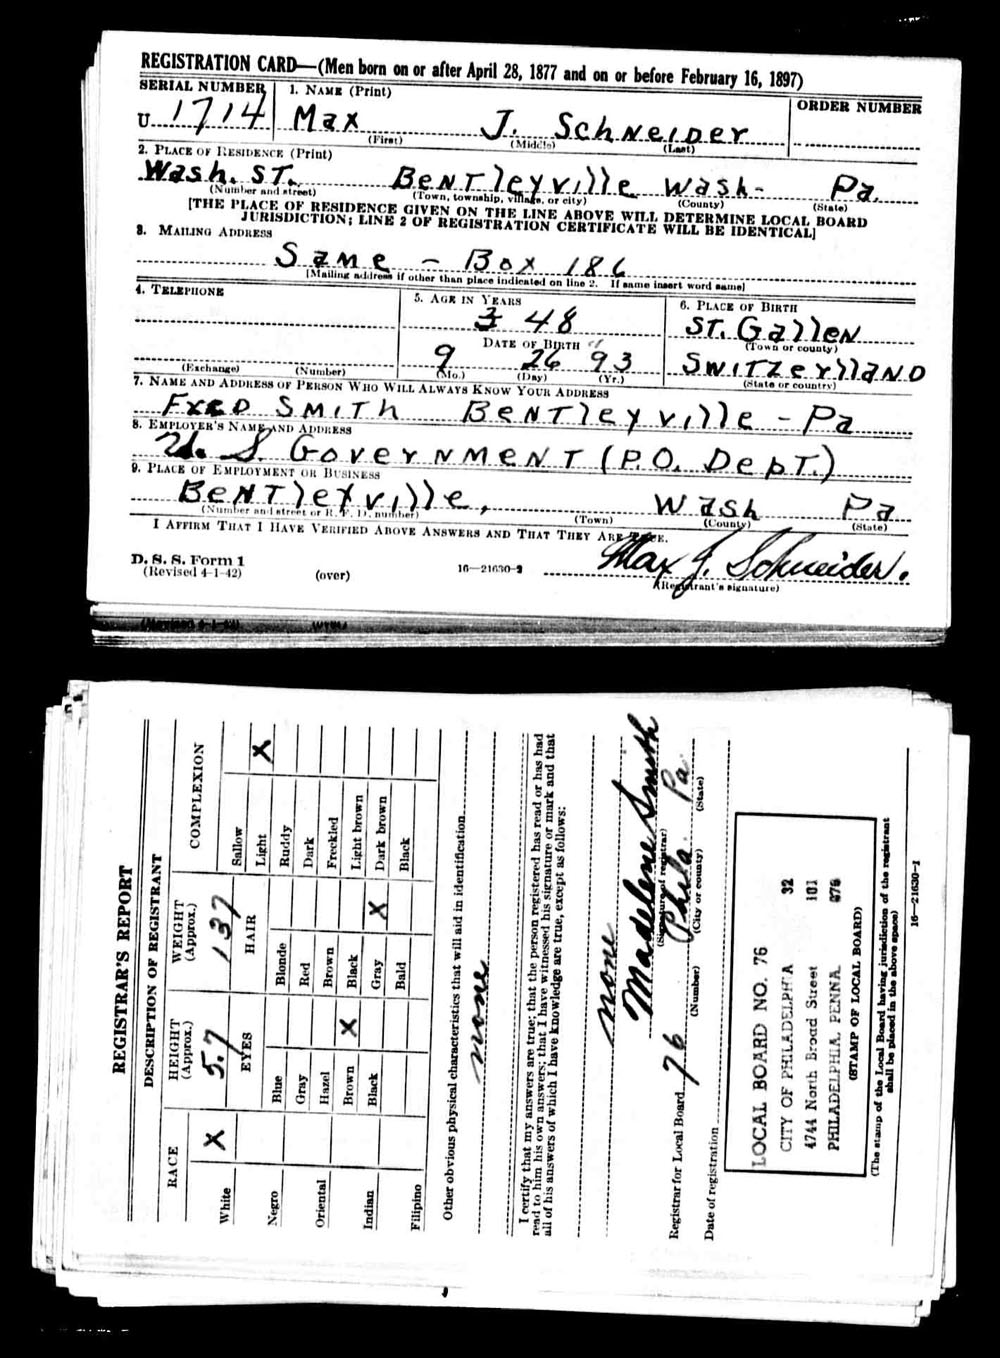 REGISTRATION CARD—(Men born on or after April 28, 1877 and on or before February 16, 1897)
SERIAL NUMBER 1. NAME (Print) ORDER NUMBER
U 1714 Max J. Schneider
(First) (Middle) (Last)
2. PLACE OF RESIDENCE (Print)
Wash. ST. Bentleyville Wash- Pa.
(Number and street) (Town, township, village, or city) (County) (State)
[THE PLACE OF RESIDENCE GIVEN ON THE LINE ABOVE WILL DETERMINE LOCAL BOARD
JURISDICTION; LINE 2 OF REGISTRATION CERTIFICATE WILL BE IDENTICAL]
3. MAILING ADDRESS
Same - Box 186
[Mailing address if other than place indicated on line 2. If same insert word same]
4. TELEPHONE 5. AGE IN YEARS 6. PLACE OF BIRTH
48 ST. Gallen
DATE OF BIRTH (Town or county)
9 26 93 Switzerland
(Exchange) (Number) (Mo.) (Day) (Yr.) (State or country)
7. NAME AND ADDRESS OF PERSON WHO WILL ALWAYS KNOW YOUR ADDRESS
Fred Smith Bentleyville - Pa
8. EMPLOYER'S NAME AND ADDRESS
U. S. Government (P.O. Dept.)
9. PLACE OF EMPLOYMENT OR BUSINESS
Bentleyville, Wash Pa
(Number and street or R. F. D. number) (Town) (County) (State)
I AFFIRM THAT I HAVE VERIFIED ABOVE ANSWERS AND THAT THEY ARE TRUE.
Max J. Schneider.
D. S. S. Form 1
(Revised 4-1-42) (over) 16—21630-2 (Registrant's signature)
REGISTRAR'S REPORT
DESCRIPTION OF REGISTRANT
RACE HEIGHT (Approx.) WEIGHT (Approx.) COMPLEXION
White X 5.7 137 Sallow
EYES HAIR Light X
Negro Blue Blonde Ruddy
Gray Red Dark
Oriental Hazel Brown Freckled
Brown X Black Light brown
Indian Black Gray X Dark brown
Bald Black
Filipino
Other obvious physical characteristics that will aid in identification
none
I certify that my answers are true; that the person registered has read or has had
read to him his own answers; that I have witnessed his signature or mark and that
all of his answers of which I have knowledge are true, except as follows:
none
Madelene Smith
(Signature of registrar)
Registrar for Local Board 76 Phila. Pa.
(Number) (City or county) (State)
Date of registration
LOCAL BOARD NO. 76
CITY OF PHILADELPHIA 32
4744 North Broad Street 101
PHILADELPHIA, PENNA. 076
(STAMP OF LOCAL BOARD)
(The stamp of the Local Board having jurisdiction of the registrant
shall be placed in the above space)
16—21630-1